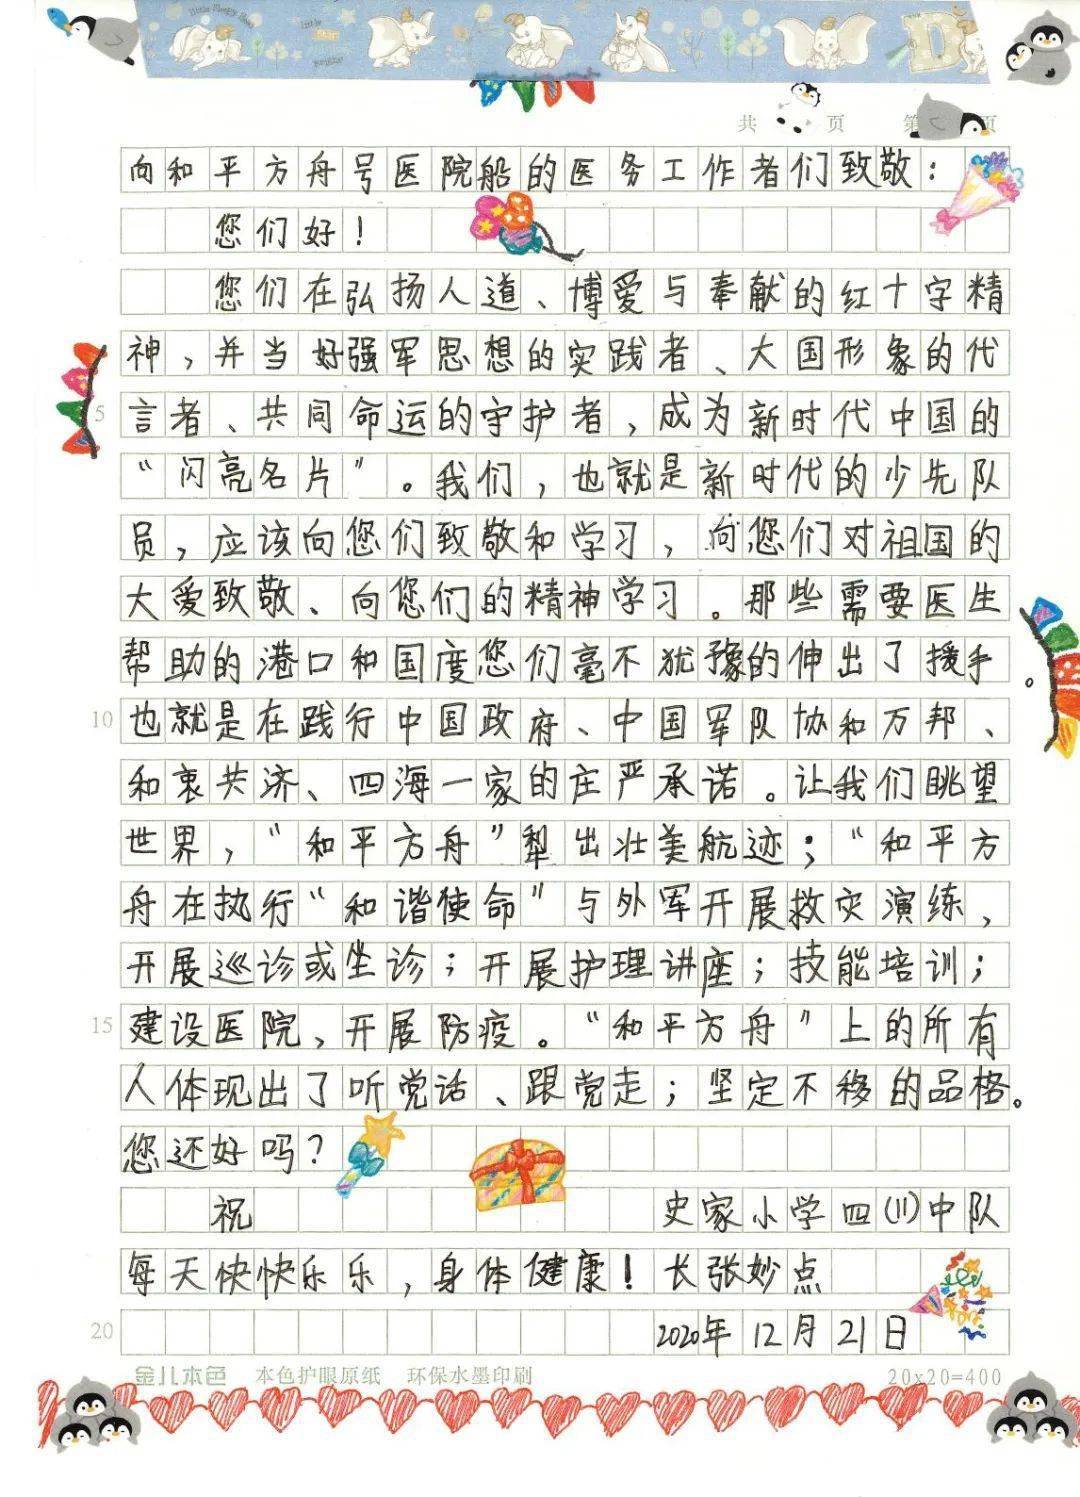 共 页 第 页
向和平方舟号医院船的医务工作者们致敬：
您们好！
您们在弘扬人道、博爱与奉献的红十字精
神，并当好强军思想的实践者、大国形象的代
5 言者、共同命运的守护者，成为新时代中国的
“闪亮名片”。我们，也就是新时代的少先队
员，应该向您们致敬和学习，向您们对祖国的
大爱致敬、向您们的精神学习。那些需要医生
帮助的港口和国度您们毫不犹豫的伸出了援手。
10 也就是在践行中国政府、中国军队协和万邦、
和衷共济、四海一家的庄严承诺。让我们眺望
世界，“和平方舟”犁出壮美航迹；“和平方
舟在执行“和谐使命”与外军开展救灾演练，
开展巡诊或坐诊；开展护理讲座；技能培训；
15 建设医院，开展防疫。“和平方舟”上的所有
人体现出了听党话、跟党走；坚定不移的品格。
您还好吗？
祝 史家小学四(11)中队
每天快快乐乐，身体健康！ 长张妙点
20 2020年 12月 21日
金儿本色 本色护眼原纸 环保水墨印刷 20x20=400